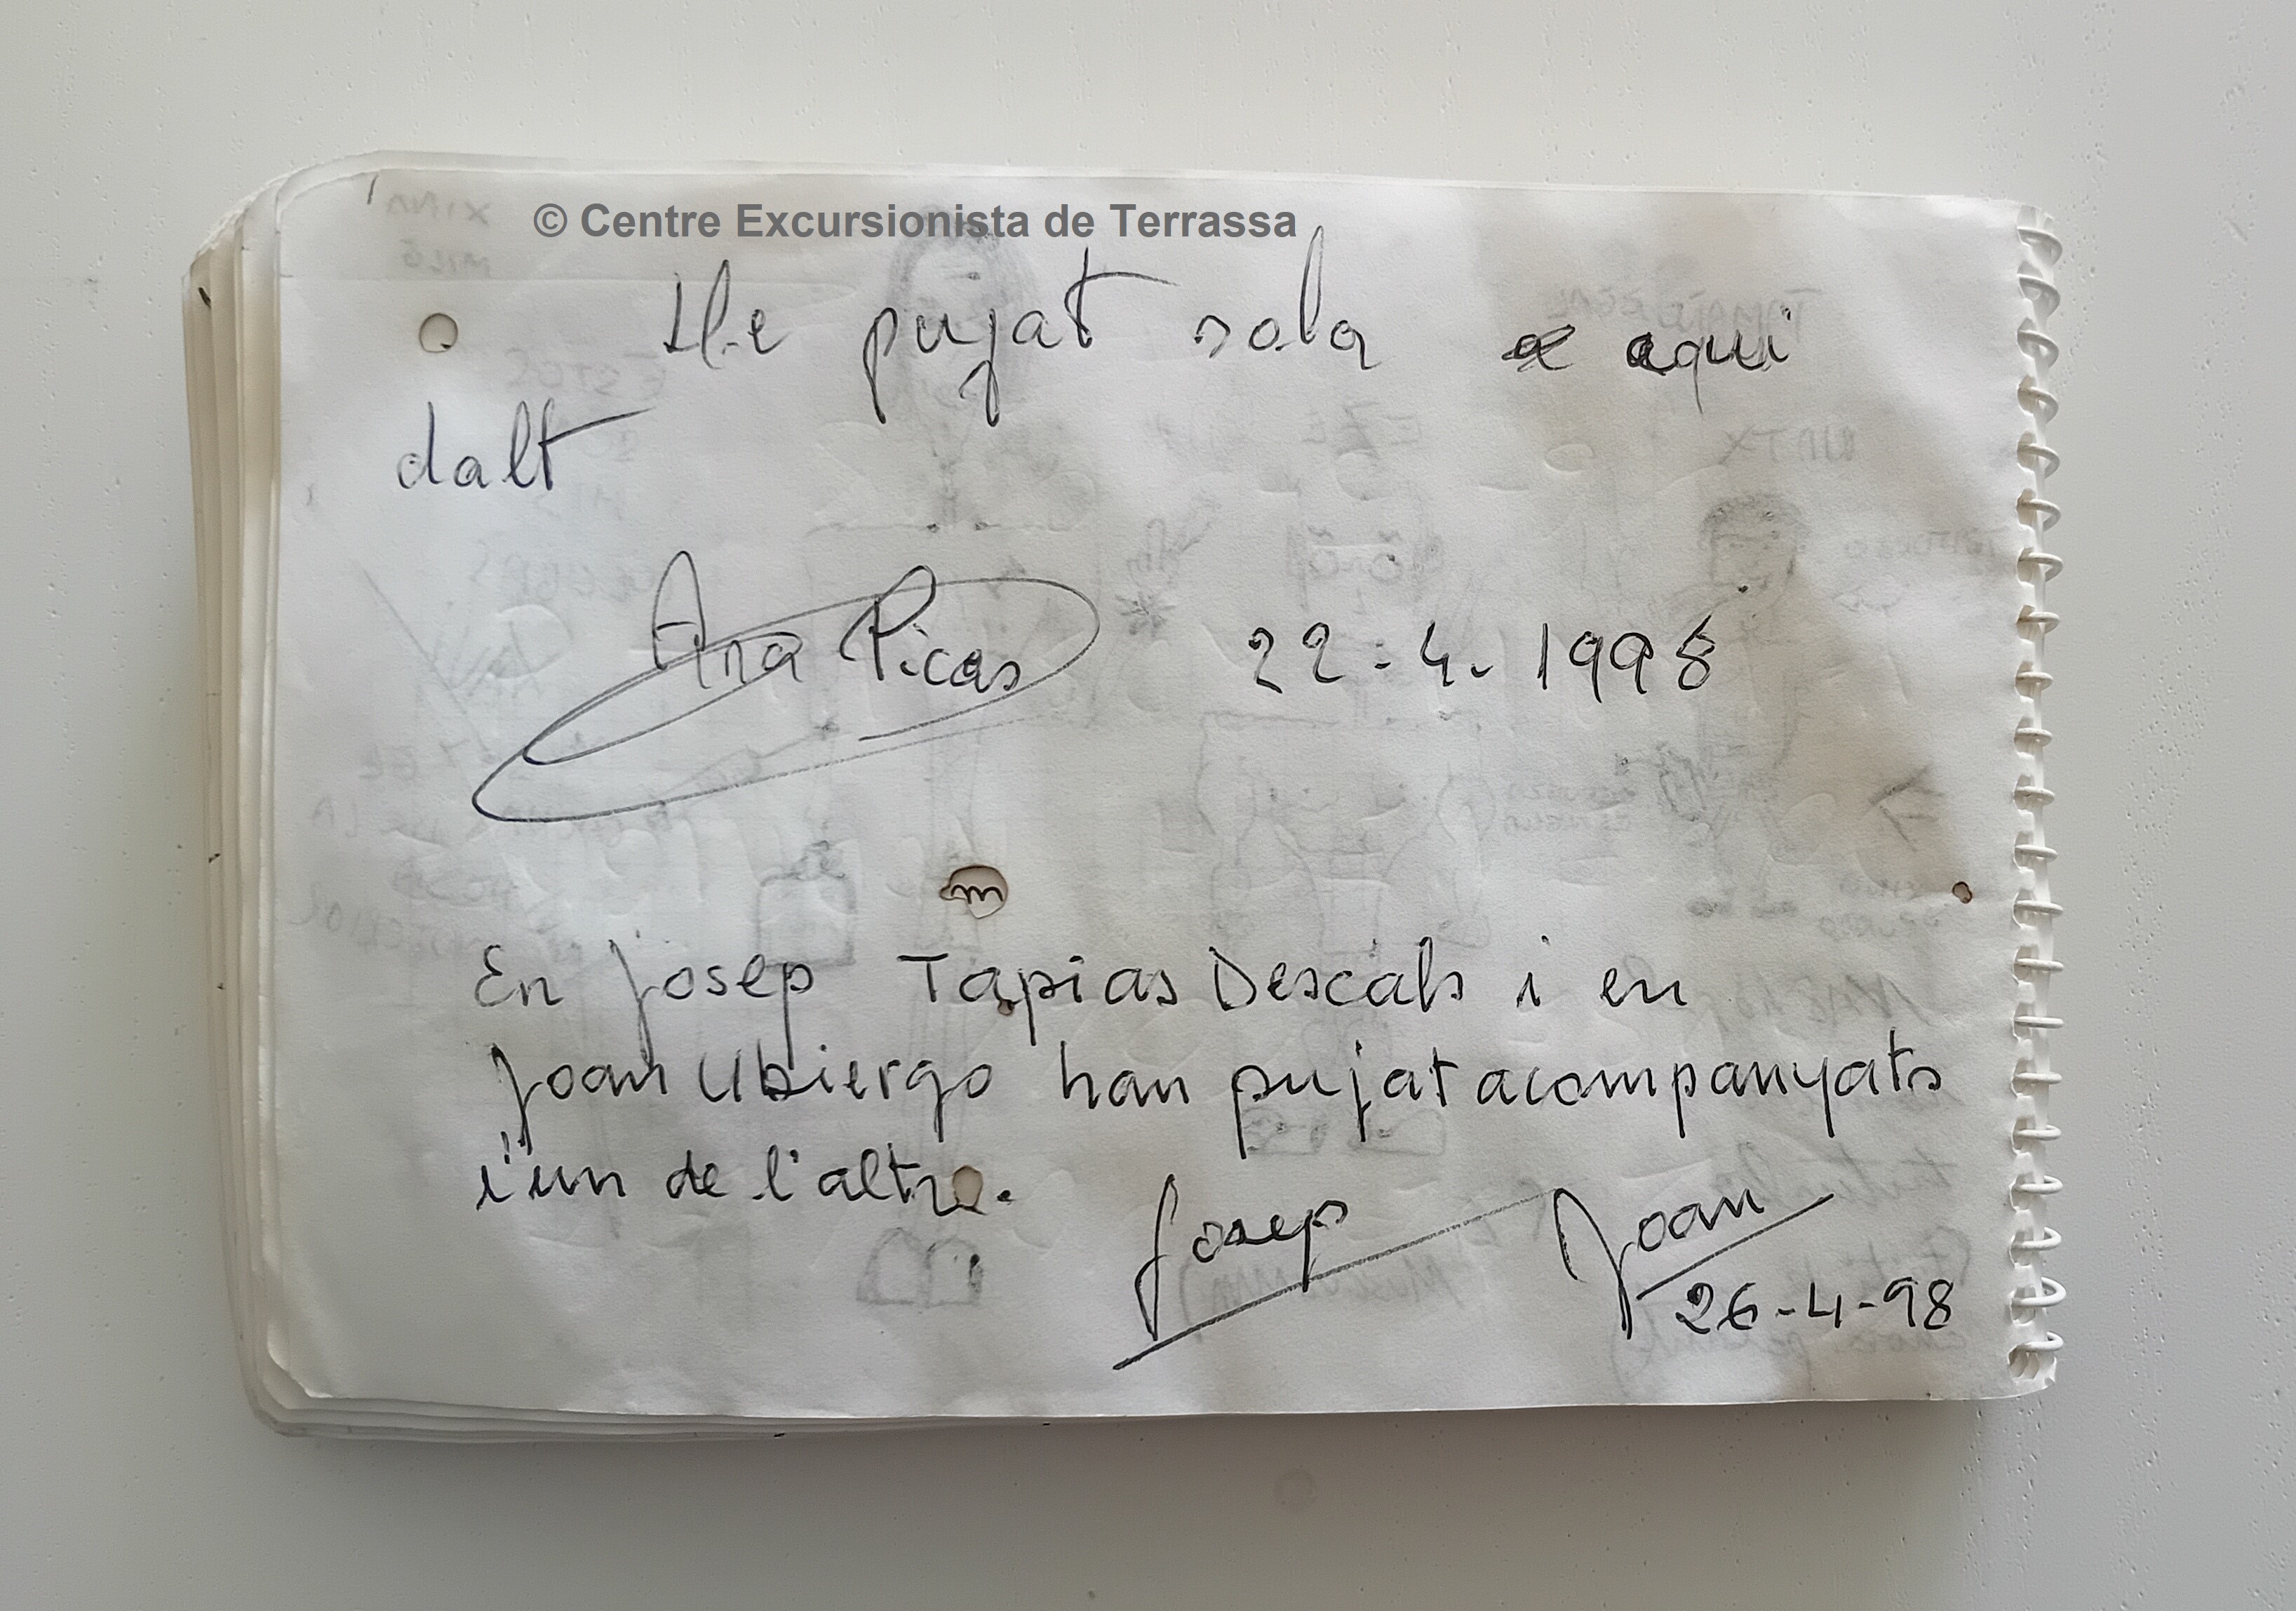 © Centre Excursionista de Terrassa
He pujat sola a aqui
dalt
Ana Picas 22.4.1998
En Josep Tapias Descals i en
Joan Ubiergo han pujat acompanyats
l'un de l'altre.
Josep Joan
26-4-98